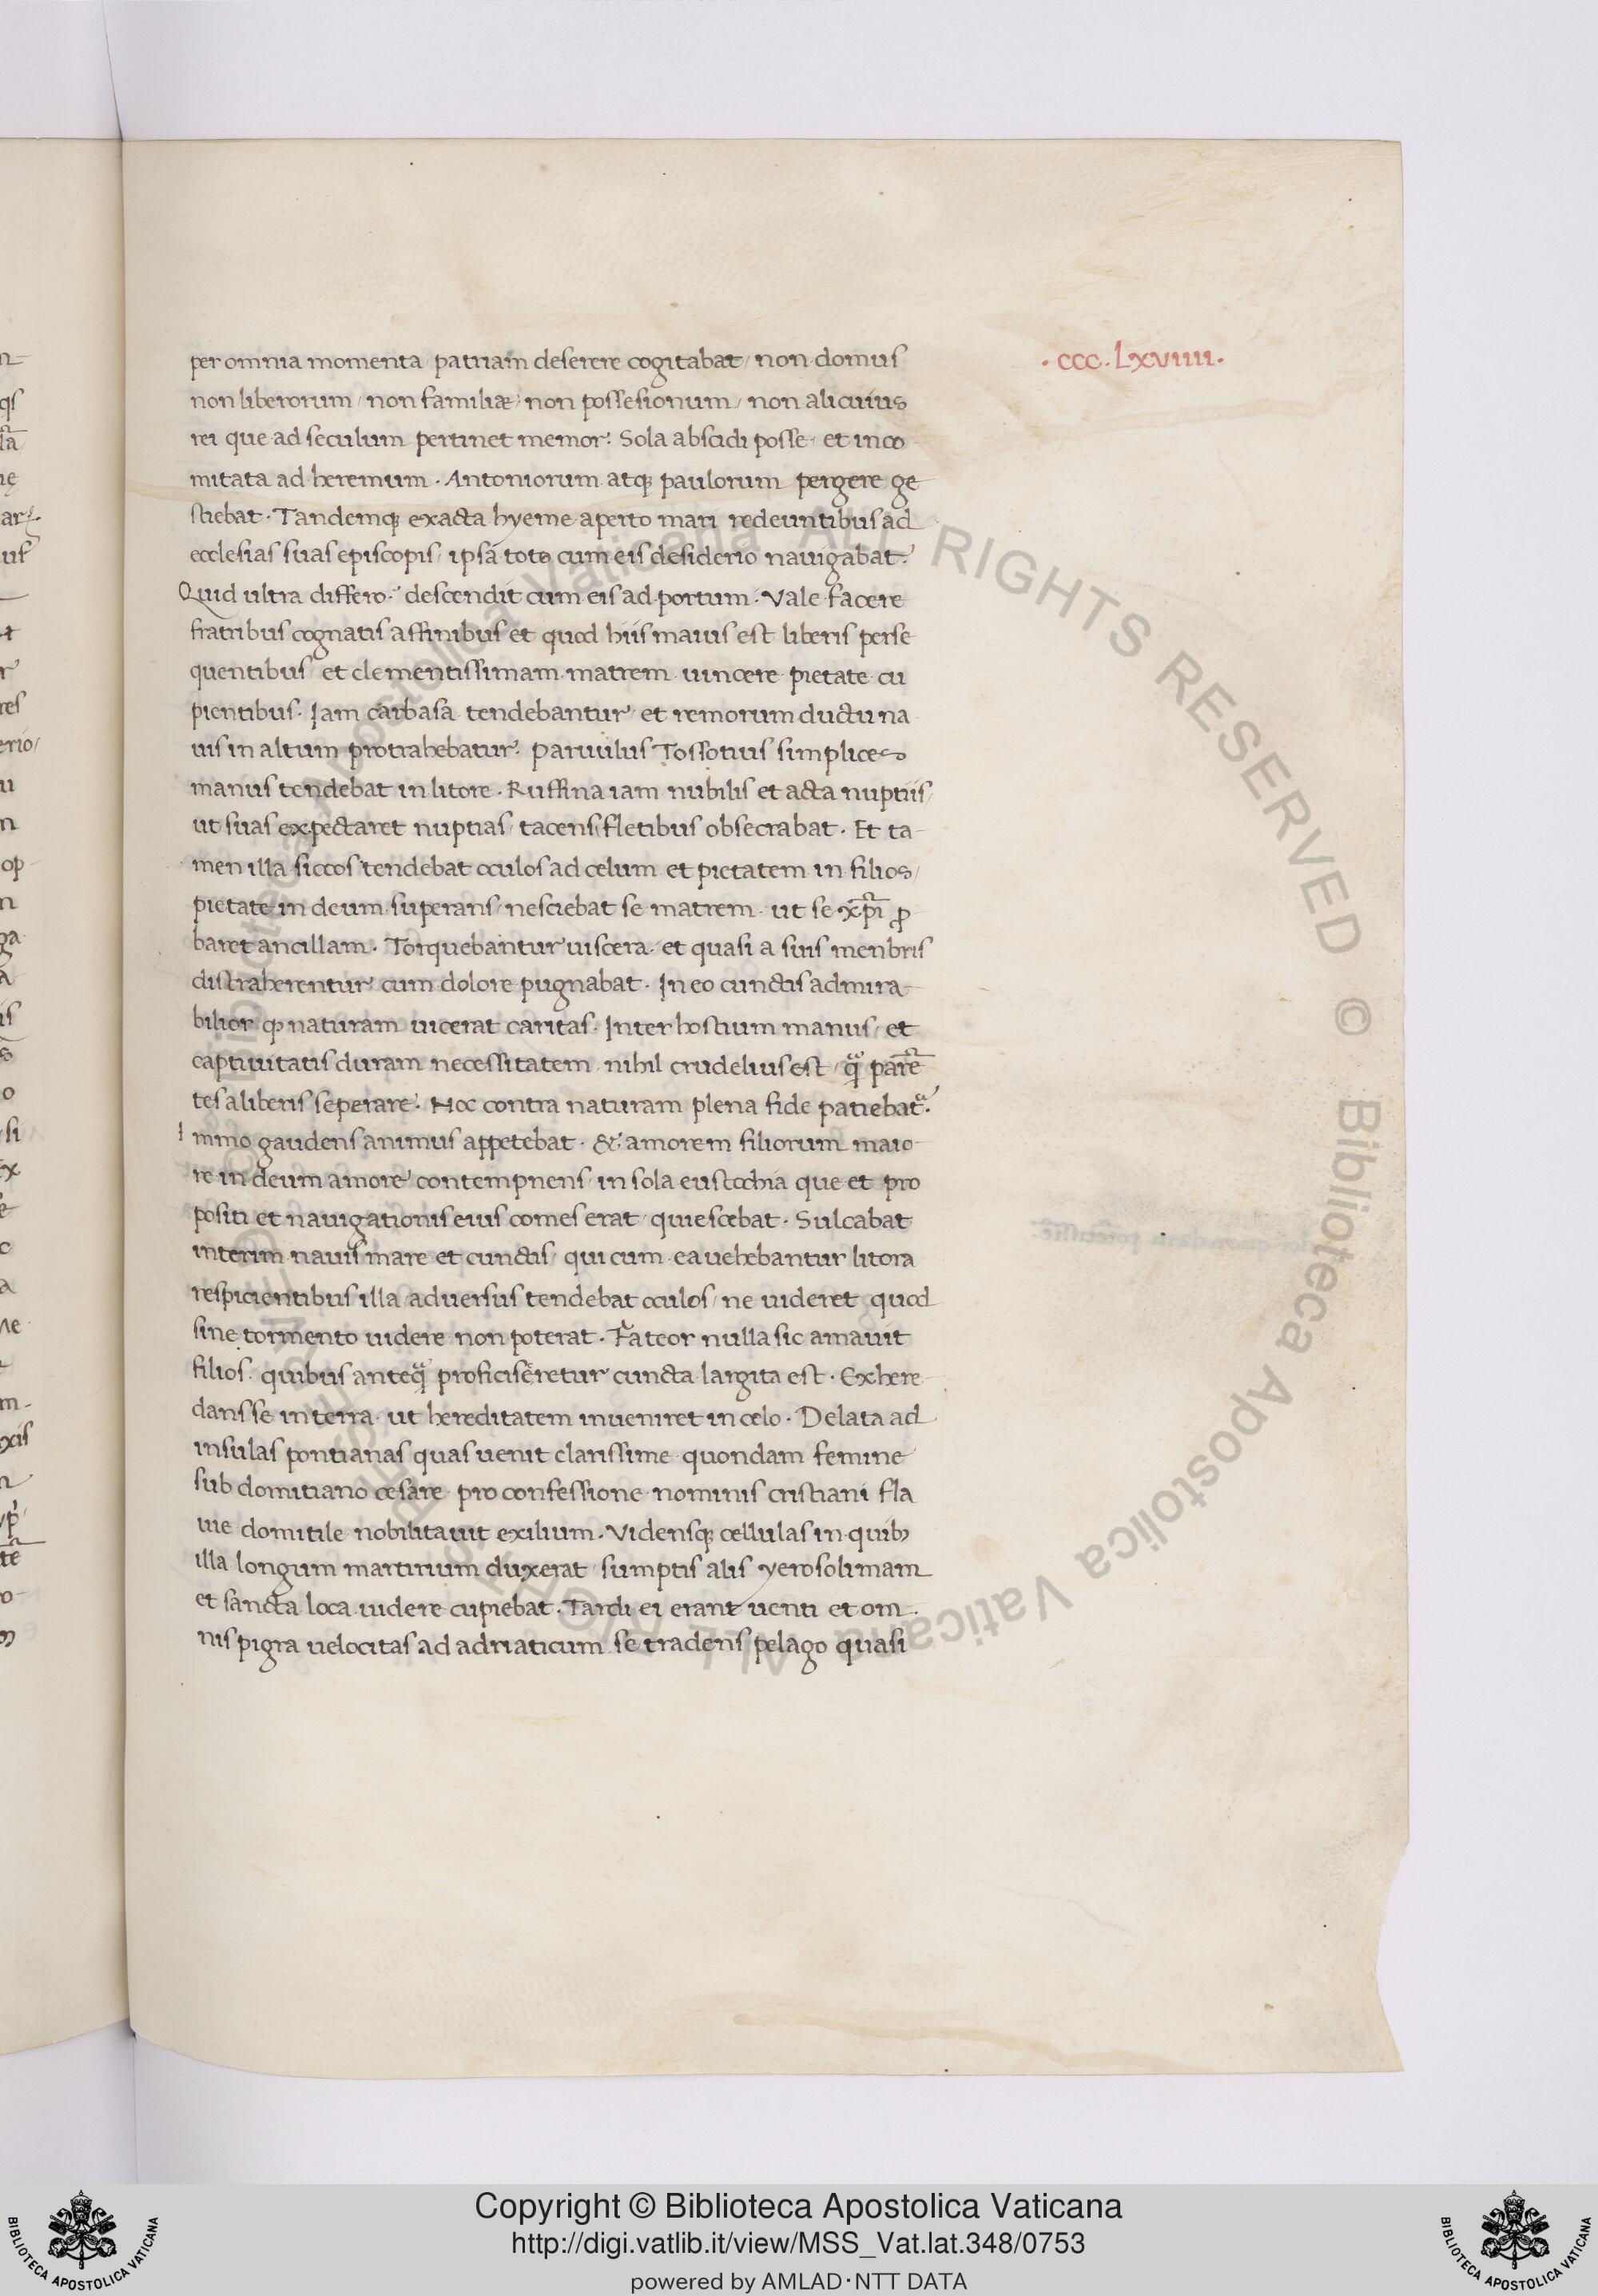 · ccc · Lxviiii ·
per omnia momenta / patriam deserere cogitabat / non domus
non liberorum / non familiæ / non possesionum / non alicuius
rei que ad seculum pertinet memor. Sola abscidi posse et inco
mitata ad heremum · Antoniorum atq; paulorum pergere ge
stiebat · Tandemq; exacta hyeme aperto mari redeuntibus ad
ecclesias suas episcopis / ipsa toto cum eis desiderio nauigabat.
Quid ultra differo · descendit cum eis ad portum · Vale facere
fratribus cognatis affinibus et quod hiis maius est liberis perse
quentibus et clementissimam matrem uincere pietate cu
pientibus · Iam carbasa tendebantur et remorum ductu na
uis in altum protrahebatur. Paruulus Tossotius simplices
manus tendebat in litore · Ruffina iam nubilis et acta nuptiis /
ut suas expectaret nuptias / tacens fletibus obsecrabat · Et ta
men illa siccos tendebat oculos ad celum et pietatem in filios /
pietate in deum superans / nesciebat se matrem ut se xp̄i ꝓ
baret ancillam · Torquebantur uiscera et quasi a suis menbris
distraherentur cum dolore pugnabat · In eo cunctis admira
bilior ꝙ naturam uicerat caritas · Inter hostium manus / et
captiuitatis duram necessitatem nihil crudelius est / qᷓ parē
tes a liberis seperare. Hoc contra naturam plena fide patiebatᷓ.
Immo gaudens animus appetebat · & amorem filiorum maio
re in deum amore contempnens / in sola eustochia que et pro
positi et nauigationis eius comes erat / quiescebat · Sulcabat
interim nauis mare et cunctis / qui cum ea uehebantur litora
respicientibus illa / aduersus tendebat oculos / ne uideret quod
sine tormento uidere non poterat · Fateor nulla sic amauit
filios quibus anteqᷓ proficiseretur cuncta largita est · Exhere
dans se in terra ut hereditatem inueniret in celo · Delata ad
insulas pontianas quas uenit clarissime quondam femine
sub domitiano cesare pro confessione nominis cristiani fla
uie domitile nobilitauit exilium · Vidensq; cellulas in quib;
illa longum martirium duxerat / sumptis alis yerosolimam
et sancta loca uidere cupiebat · Tardi ei erant uenti et om
nis pigra uelocitas ad adriaticum se tradens pelago quasi
Copyright © Biblioteca Apostolica Vaticana
http://digi.vatlib.it/view/MSS_Vat.lat.348/0753
powered by AMLAD·NTT DATA